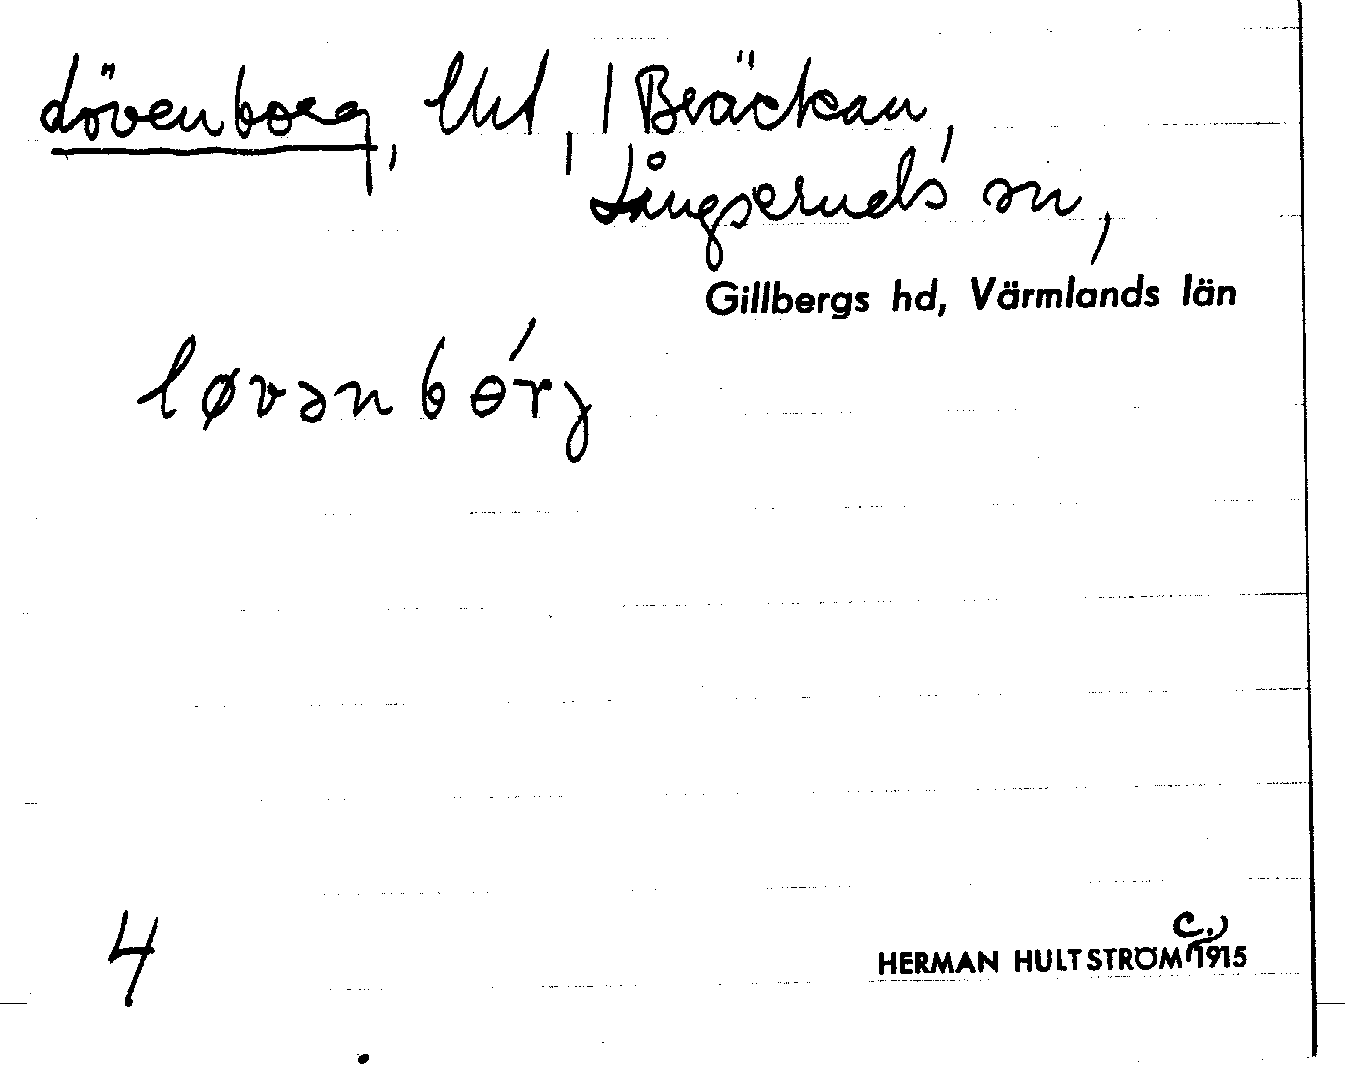 Lövenborg, lht, / Bräckan,
Långseruds sn,
Gillbergs hd, Värmlands län
løvənbɵ́rj
4
HERMAN HULTSTRÖM c. 1915